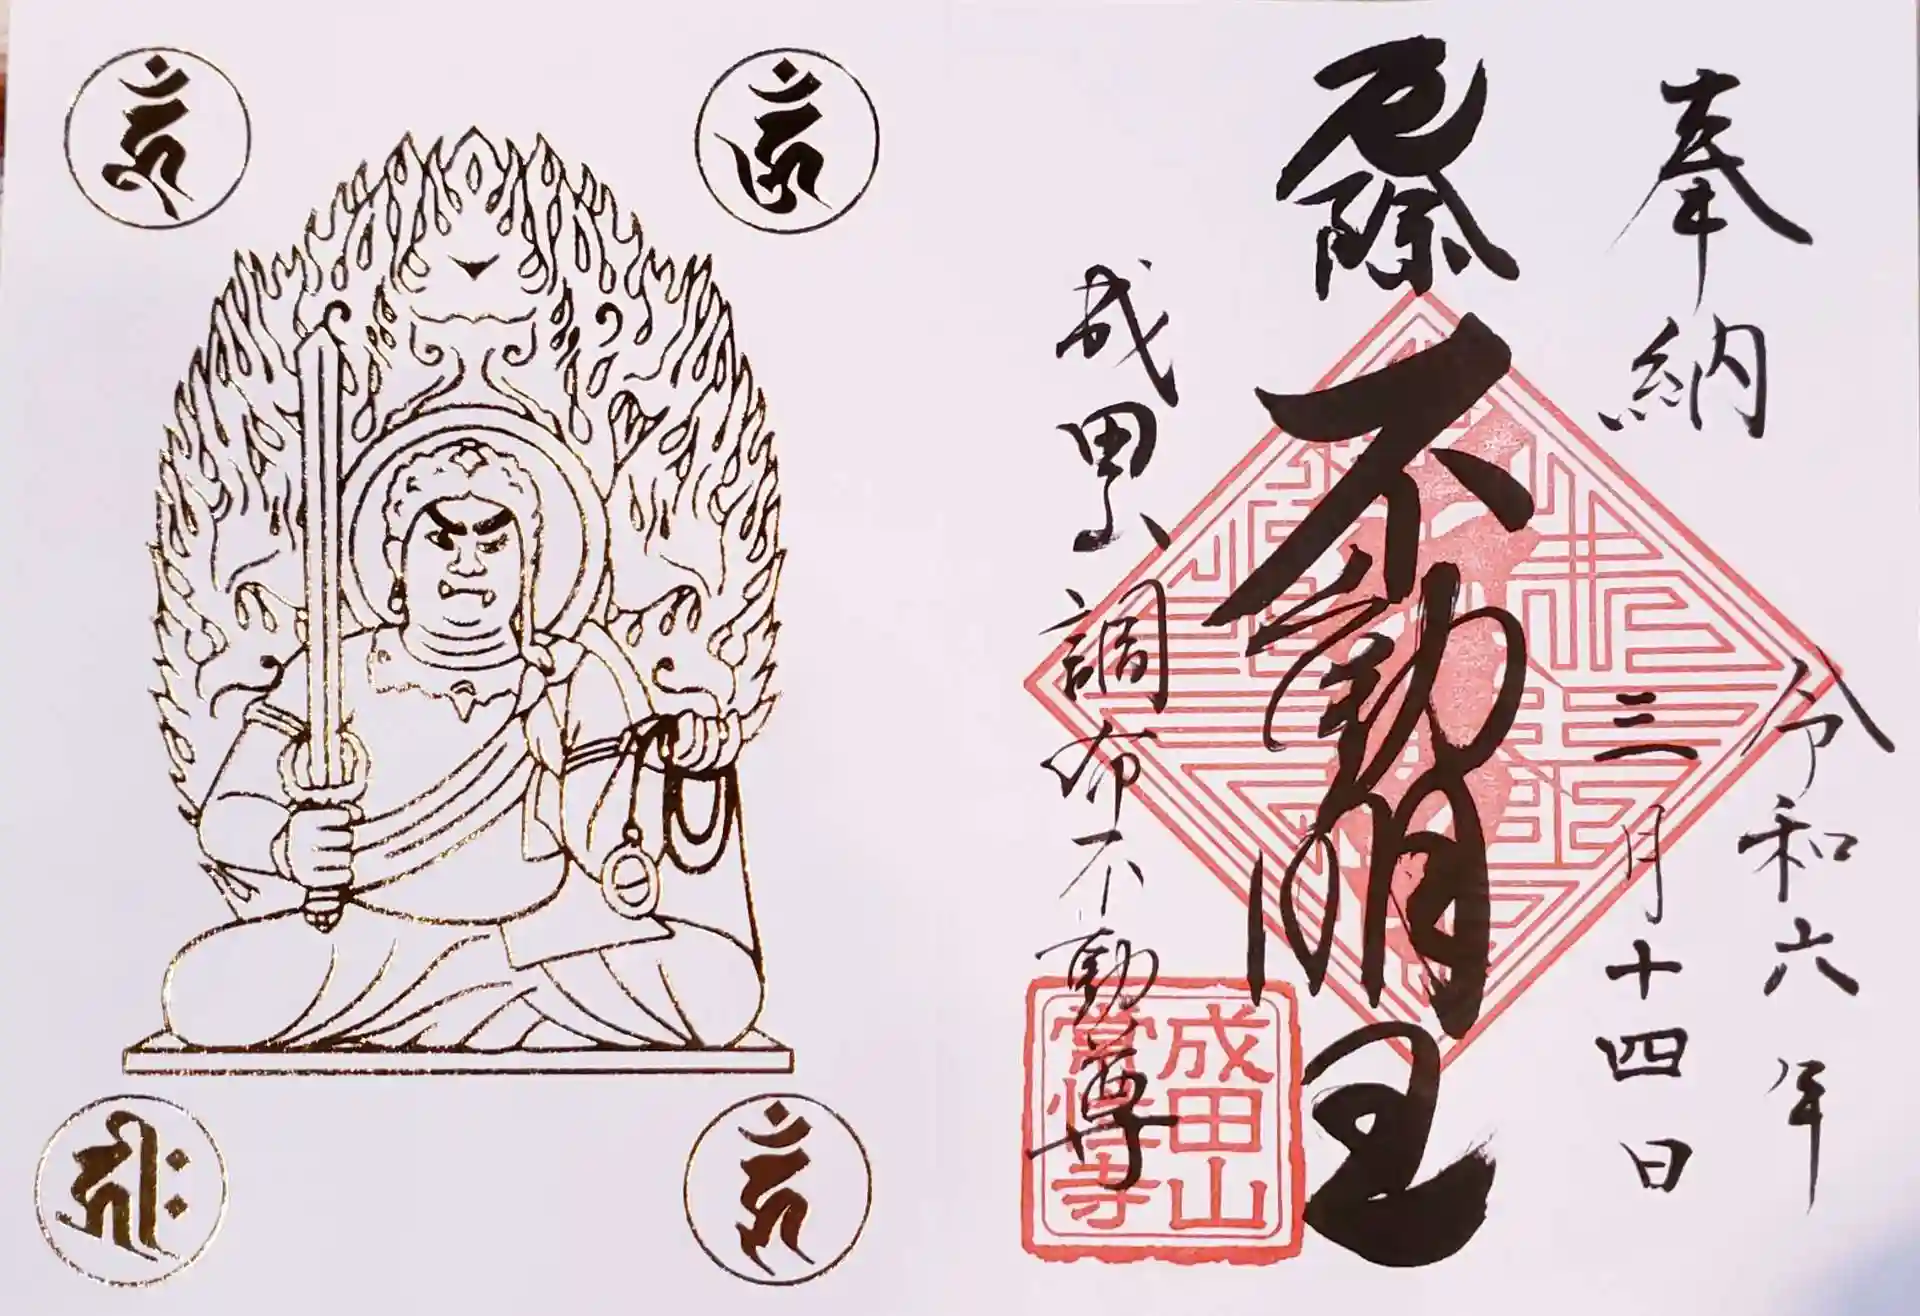 奉納
令和六年
三月十四日
厄除
不動明王
成田山調布不動尊
成田山
常性寺